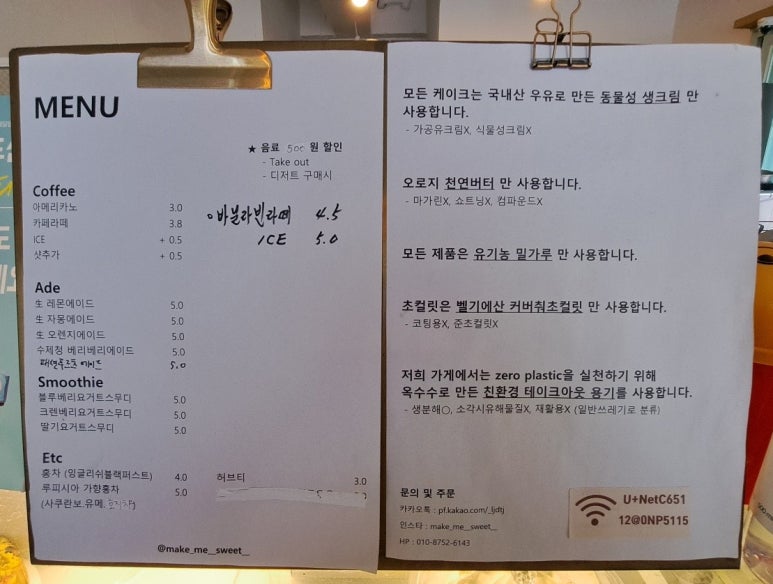 MENU
★ 음료 500 원 할인
- Take out
- 디저트 구매시
Coffee
아메리카노 3.0
카페라떼 3.8
ICE + 0.5
샷추가 + 0.5
바닐라빈라떼 4.5
ICE 5.0
Ade
生 레몬에이드 5.0
生 자몽에이드 5.0
生 오렌지에이드 5.0
수제청 베리베리에이드 5.0
에이드 5.0
Smoothie
블루베리요거트스무디 5.0
크렌베리요거트스무디 5.0
딸기요거트스무디 5.0
Etc
홍차 (잉글리쉬블랙퍼스트) 4.0
루피시아 가향홍차 5.0
(사쿠란보.유메.
허브티 3.0
@make_me__sweet__
모든 케이크는 국내산 우유로 만든 동물성 생크림 만
사용합니다.
- 가공유크림X, 식물성크림X
오로지 천연버터 만 사용합니다.
- 마가린X, 쇼트닝X, 컴파운드X
모든 제품은 유기농 밀가루 만 사용합니다.
초컬릿은 벨기에산 커버춰초컬릿 만 사용합니다.
- 코팅용X, 준초컬릿X
저희 가게에서는 zero plastic을 실천하기 위해
옥수수로 만든 친환경 테이크아웃 용기를 사용합니다.
- 생분해○, 소각시유해물질X, 재활용X (일반쓰레기로 분류)
문의 및 주문
카카오톡 : pf.kakao.com/_ljdtj
인스타 : make_me__sweet__
HP : 010-8752-6143
U+NetC651
12@0NP5115